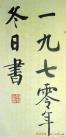 一九七零年
冬日書